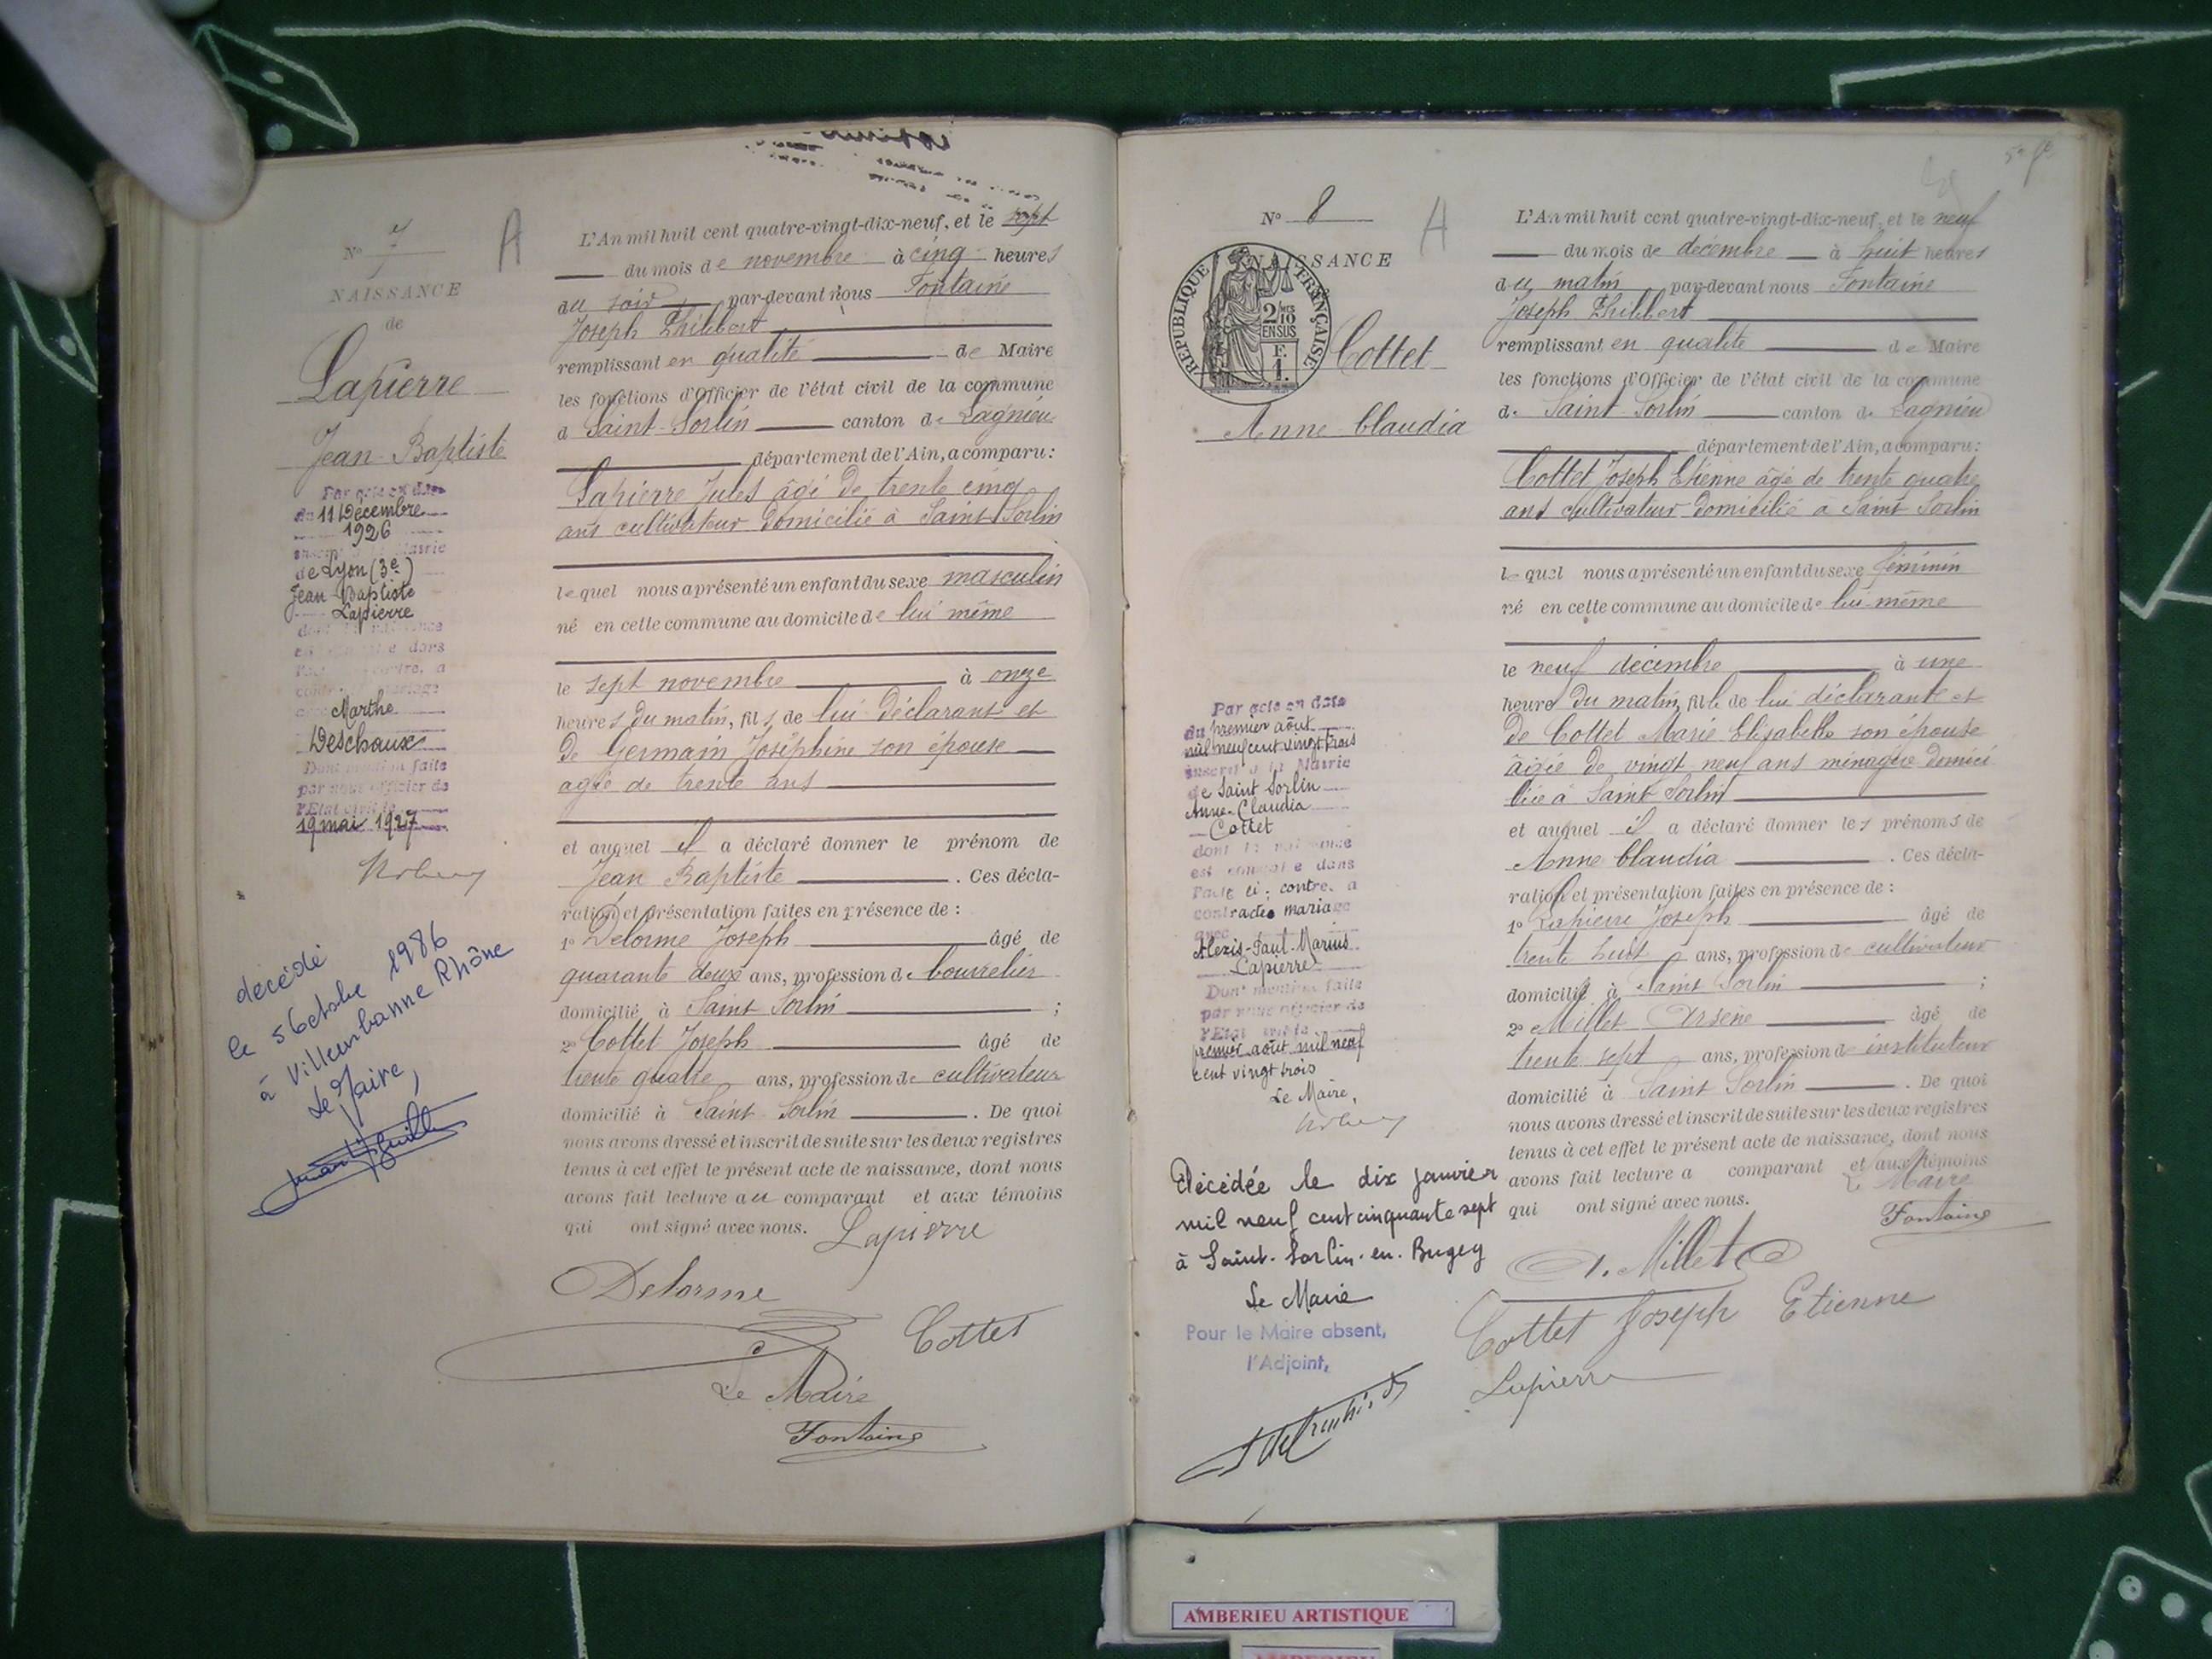 N° 7
NAISSANCE
de
Lapierre
Jean-Baptiste
Par acte en date
du 11 Décembre
1926
inscrit à la Mairie
de Lyon (3e)
Jean-Baptiste
Lapierre
dont la naissance
est constatée dans
l'acte ci-contre, a
contracté mariage
avec Marthe
Deschaux
Dont mention faite
par nous officier de
l'Etat civil le
19 mai 1927
décédé
le 5 Octobre 1986
à Villeurbanne Rhône
Le Maire,
A
L'An mil huit cent quatre-vingt-dix-neuf, et le sept
du mois de novembre à cinq heures
du soir par-devant nous Fontaine
Joseph Philibert
remplissant en qualité de Maire
les fonctions d'Officier de l'état civil de la commune
d Saint-Sorlin canton de Lagnieu
département de l'Ain, a comparu :
Lapierre Jules âgé de trente cinq
ans cultivateur domicilié à Saint Sorlin
lequel nous a présenté un enfant du sexe masculin
né en cette commune au domicile de lui même
le sept novembre à onze
heures du matin, fils de lui déclarant et
de Germain Joséphine son épouse
agée de trente ans
et auquel il a déclaré donner le prénom de
Jean Baptiste . Ces décla-
ration et présentation faites en présence de :
1° Delorme Joseph âgé de
quarante deux ans, profession de bourrelier
domicilié à Saint Sorlin ;
2° Cottet Joseph âgé de
trente quatre ans, profession de cultivateur
domicilié à Saint Sorlin . De quoi
nous avons dressé et inscrit de suite sur les deux registres
tenus à cet effet le présent acte de naissance, dont nous
avons fait lecture au comparant et aux témoins
qui ont signé avec nous. Lapierre
Delorme
Cottet
Le Maire
Fontaine
N° 8
NAISSANCE
REPUBLIQUE FRANÇAISE
2/10
EN SUS
F.
1.
Cottet
Anne Claudia
Par acte en date
du premier août
mil neuf cent vingt trois
inscrit à la Mairie
de Saint Sorlin
Anne-Claudia
Cottet
dont la naissance
est constatée dans
l'acte ci-contre, a
contracté mariage
avec
Alexis-Paul-Marius
Lapierre
Dont mention faite
par nous officier de
l'Etat civil le
premier août mil neuf
cent vingt trois
Le Maire,
Décédée le dix janvier
mil neuf cent cinquante sept
à Saint-Sorlin-en-Bugey
Le Maire
Pour le Maire absent,
l'Adjoint,
A
L'An mil huit cent quatre-vingt-dix-neuf, et le neuf
du mois de décembre à huit heures
du matin par-devant nous Fontaine
Joseph Philibert
remplissant en qualité de Maire
les fonctions d'Officier de l'état civil de la commune
de Saint Sorlin canton de Lagnieu
département de l'Ain, a comparu :
Cottet Joseph Etienne âgé de trente quatre
ans cultivateur domicilié à Saint Sorlin
lequel nous a présenté un enfant du sexe féminin
né en cette commune au domicile de lui même
le neuf décembre à une
heure du matin, fille de lui déclarante et
de Cottet Marie Elisabeth son épouse
âgée de vingt neuf ans ménagère domici
liée à Saint Sorlin
et auquel il a déclaré donner les prénoms de
Anne Claudia . Ces décla-
ration et présentation faites en présence de :
1° Lapierre Joseph âgé de
trente huit ans, profession de cultivateur
domicilié à Saint Sorlin ;
2° Millet Arsène âgé de
trente sept ans, profession d'instituteur
domicilié à Saint Sorlin . De quoi
nous avons dressé et inscrit de suite sur les deux registres
tenus à cet effet le présent acte de naissance, dont nous
avons fait lecture a comparant et aux témoins
qui ont signé avec nous.
Le Maire
Fontaine
A. Millet
Cottet Joseph Etienne
Lapierre
AMBERIEU ARTISTIQUE